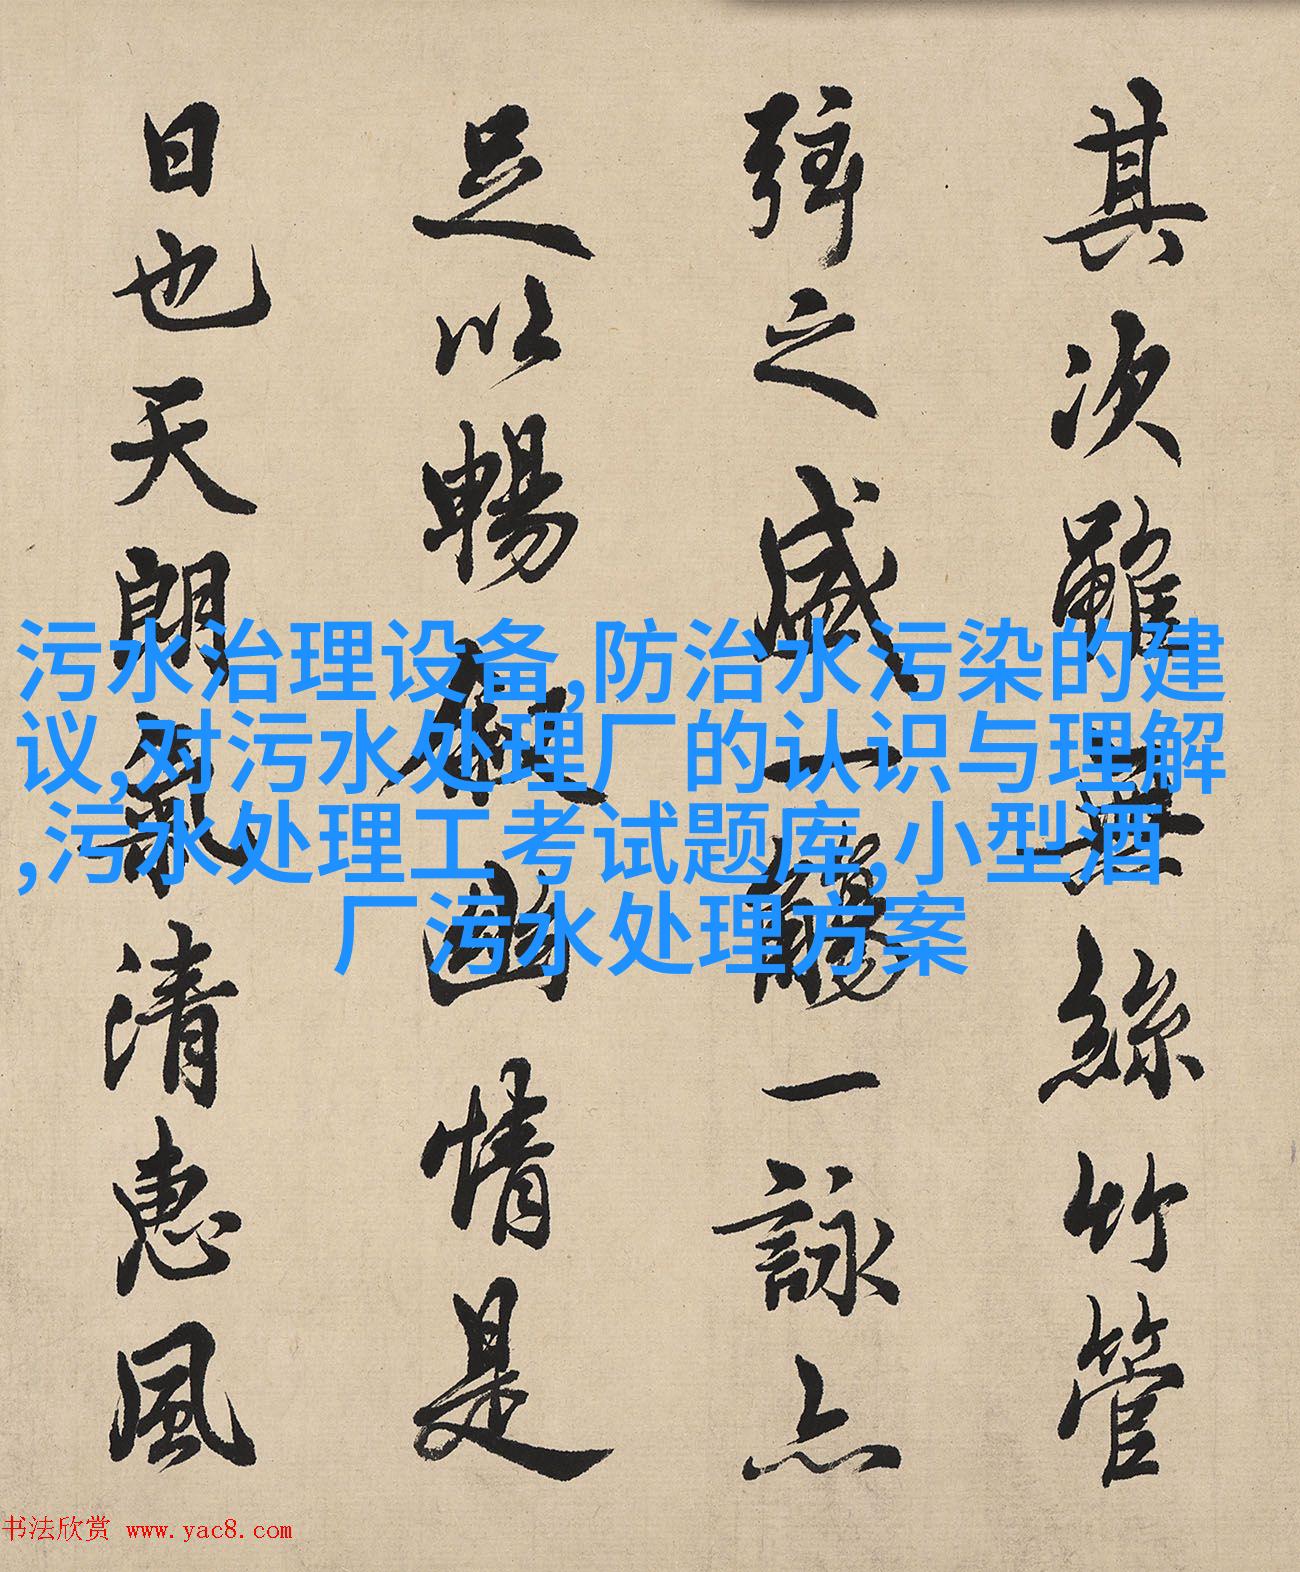 其次雖無絲竹管
弦之盛一觴一詠亦
足以暢敘幽情是
日也天朗氣清惠風
污水治理设备,防治水污染的建
议,对污水处理厂的认识与理解
,污水处理工考试题库,小型酒
厂污水处理方案
书法欣赏 www.yac8.com